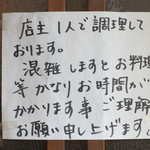 店主1人で調理して
おります。
混雑しますとお料理
等かなりお時間が
かかります事ご理解
お願い申し上げます。